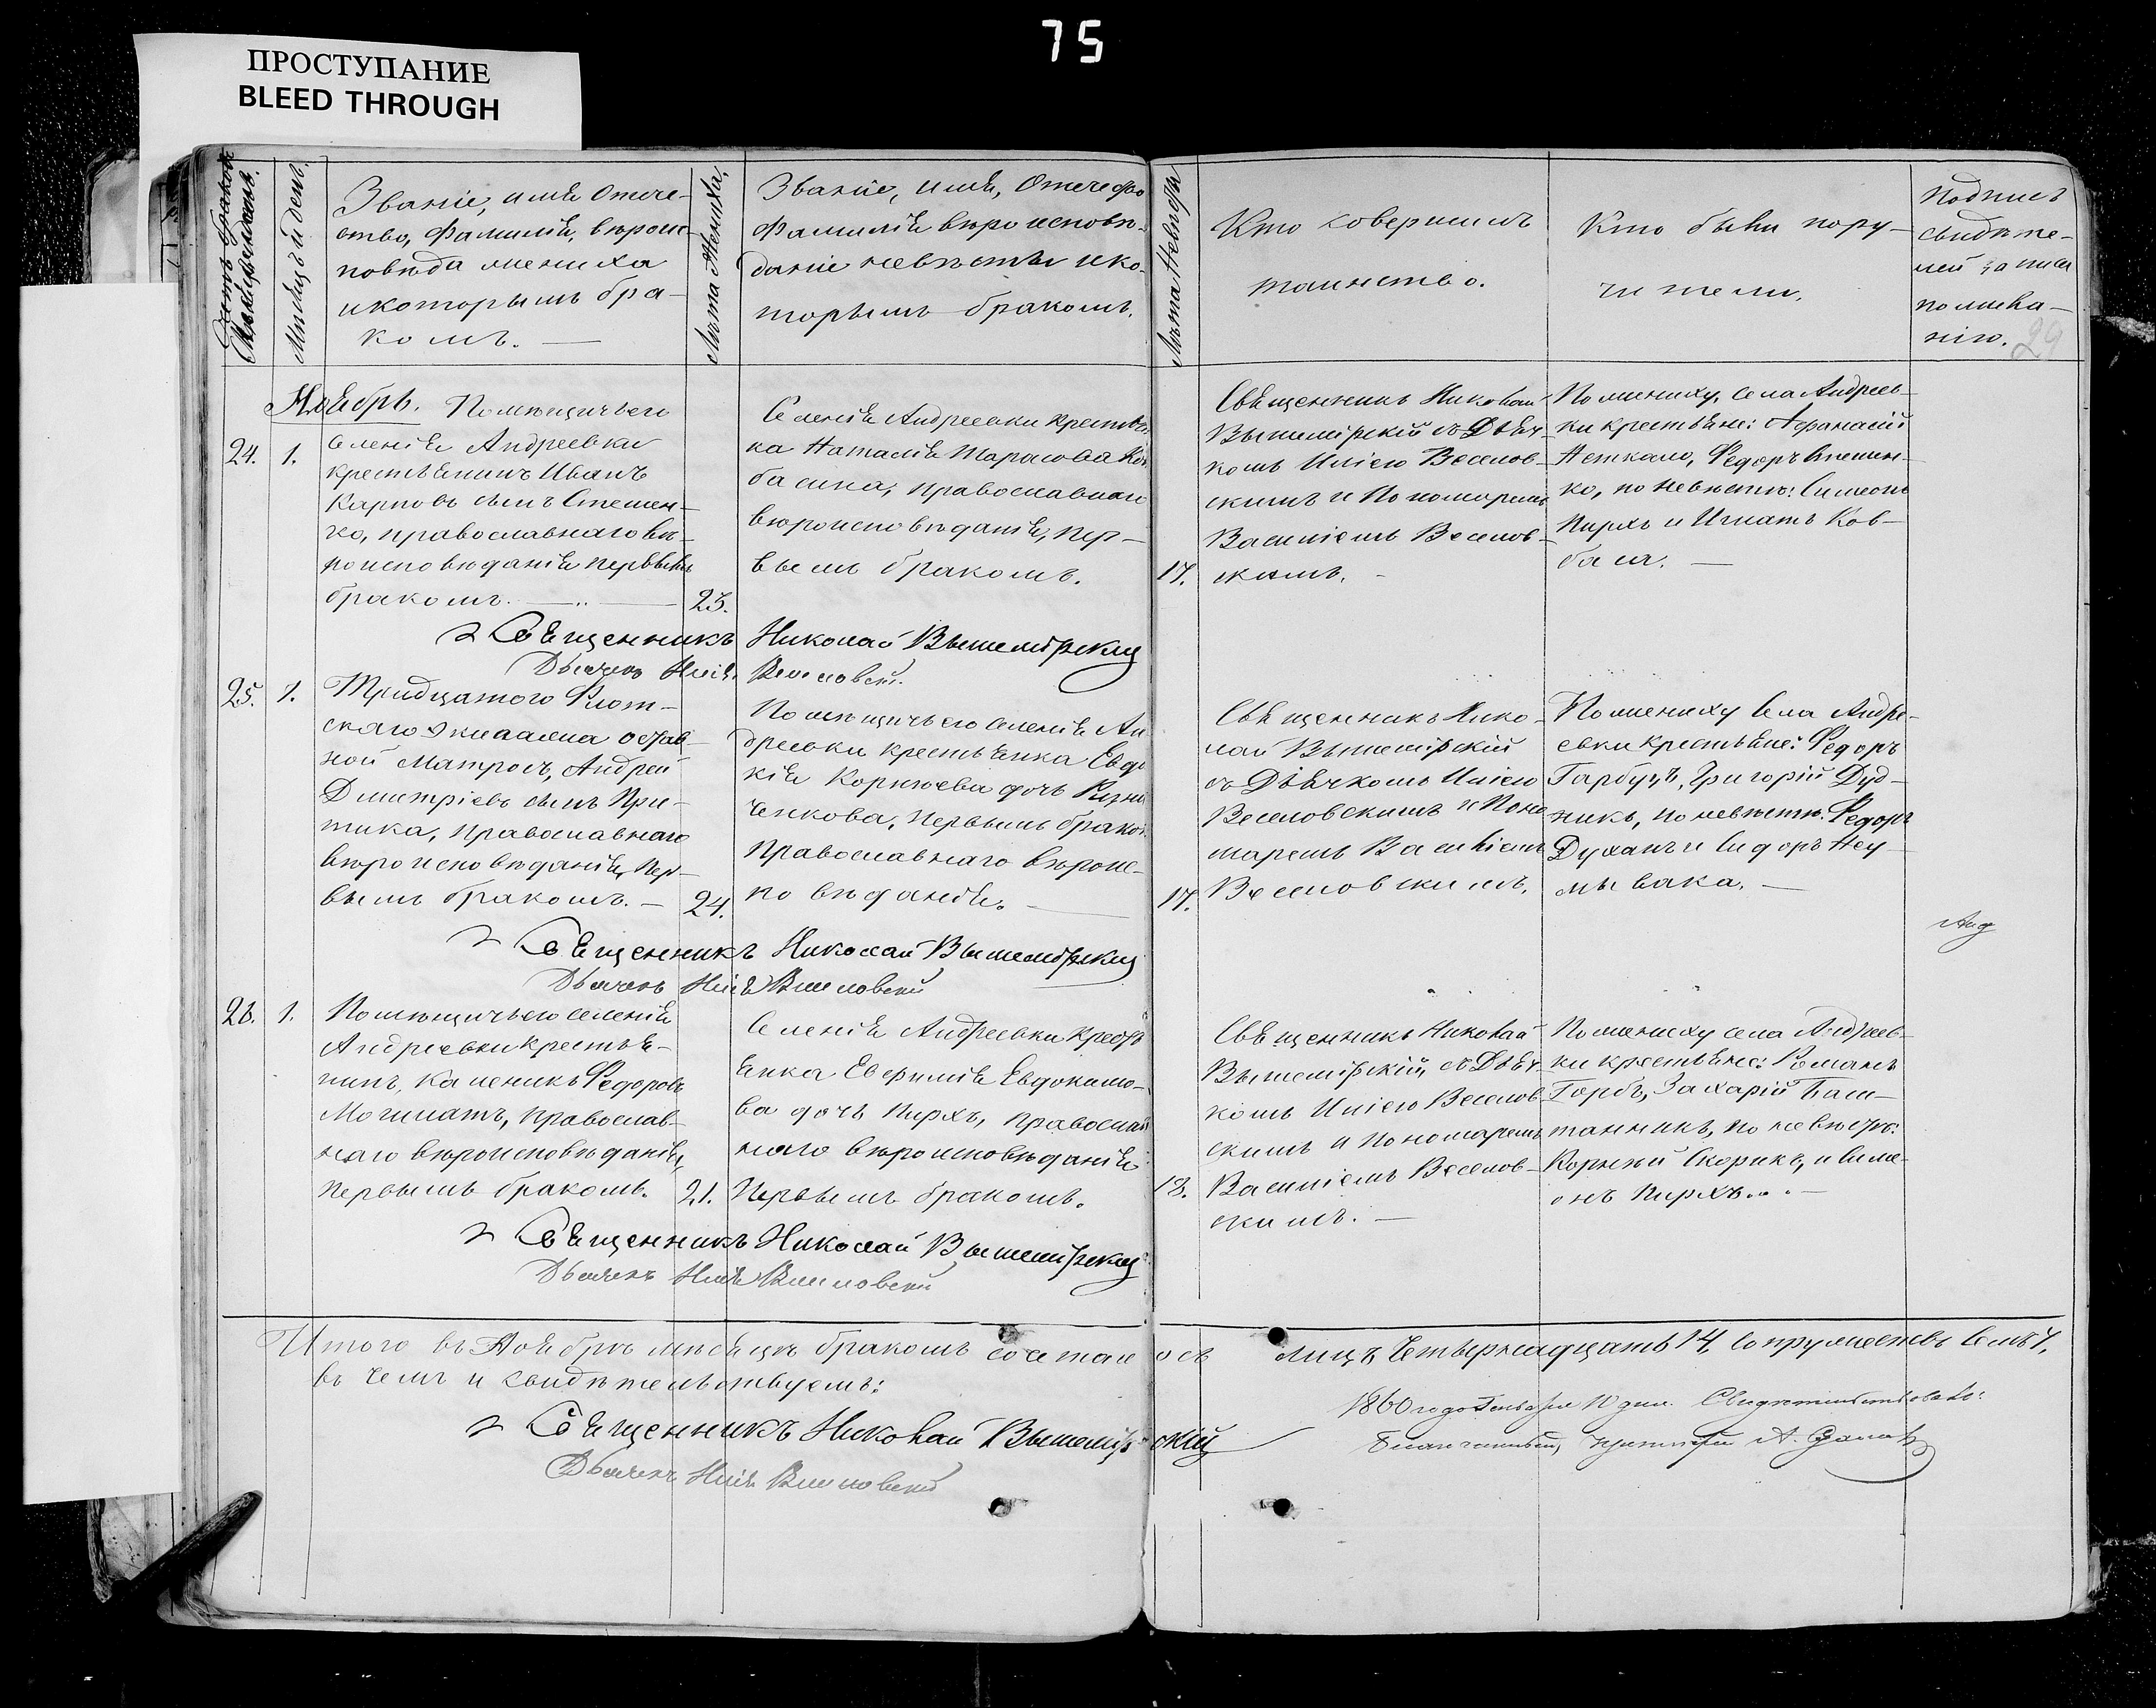 75
ПРОСТУПАНИЕ
BLEED THROUGH
Мѣсяцъ и день.
Званіе, имя Отече-
ство, Фамилія, вѣроис-
повѣда жениха
и которымъ бра-
комъ.
Лѣта Жениха,
Званіе, имя, Отечество
Фамилія вѣроисповѣ-
даніе невѣсты и ко-
торымъ бракомъ.
Лѣта Невѣсты
Кто совершилъ
таинство.
Кто были пору-
чители.
Подпись
свидѣте-
лей записи
по жела-
нію.
29
Ноябрь.
24. 1.
Помѣщичьего
селенія Андреевки
крестьянинъ Иванъ
Карповъ сынъ Стемен-
ко, православнаго вѣ-
роисповѣданія первымъ
бракомъ.
23.
Селенія Андреевки крестьян
ка Наталія Тарасова Ков
басина, православнаго
вѣроисповѣданія, пер-
вымъ бракомъ.
17.
Священникъ Николай
Вышемірскій съ Дьяч-
комъ Иліею Веселов-
скимъ и Пономаремъ
Василіемъ Веселов-
скимъ.
По жениху, села Андреев-
ки крестьяне: Афанасій
Неткало, Федоръ Стемен-
ко, по невѣстѣ: Симеонъ
Пирхъ и Игнатъ Ков-
баса.
Священникъ Николай Вышемірскій
Дьячекъ Илія Веселовскій.
25. 1.
Тридцатого Флот-
скаго экипажа остав-
ной Матросъ, Андрей
Дмитріевъ сынъ При-
тика, православнаго
вѣроисповѣданія, Пер-
вымъ бракомъ.
24.
Помѣщичьего селенія Ан
дреевки крестьянка Евдо
кія Корнѣева дочь Резни
ченкова, первымъ браком
Православнаго вѣроис-
повѣданія.
17.
Священникъ Нико-
лай Вышемірскій
съ Дьячкомъ Иліею
Веселовскимъ и Поно
маремъ Василіемъ
Веселовскимъ.
По жениху Села Андре-
евки крестьяне: Федоръ
Гарбузъ, Григорій Дуд-
никъ, по невѣстѣ: Федоръ
Духанъ и Сидоръ Неу-
мывака.
Анд
Священникъ Николай Вышемірскій
Дьячекъ Илія Веселовскій
26. 1.
Помѣщичьего селенія
Андреевки крестья-
нинъ, Каленикъ Федоровъ
Могилатъ, Православ-
наго вѣроисповѣданія,
первымъ бракомъ.
21.
Селенія Андреевки крест
янка Евфимія Евдокимо-
ва дочь Пирхъ, православ
наго вѣроисповѣданія
Первымъ бракомъ.
18.
Священникъ Николай
Вышемірскій, съ Дьяч-
комъ Иліею Веселов-
скимъ и Пономаремъ
Василіемъ Веселов-
скимъ.
По жениху села Андреев-
ки крестьяне: Романъ
Горбъ, Захарій Баш-
танникъ, по невѣстѣ:
Корнѣй Скорикъ, и Симе-
онъ Пирхъ.
Священникъ Николай Вышемірскій
Дьячекъ Илія Веселовскій
Итого въ Ноябрѣ мѣсяцѣ бракомъ сочеталось лицъ Четырнадцать 14, Супружествъ Семь 7,
въ чемъ и свидѣтельствуемъ:
Священникъ Николай Вышемірскій
Дьячекъ Илія Веселовскій
1860 года Генваря 10 дня. Свидѣтельствовалъ:
Благочинный,